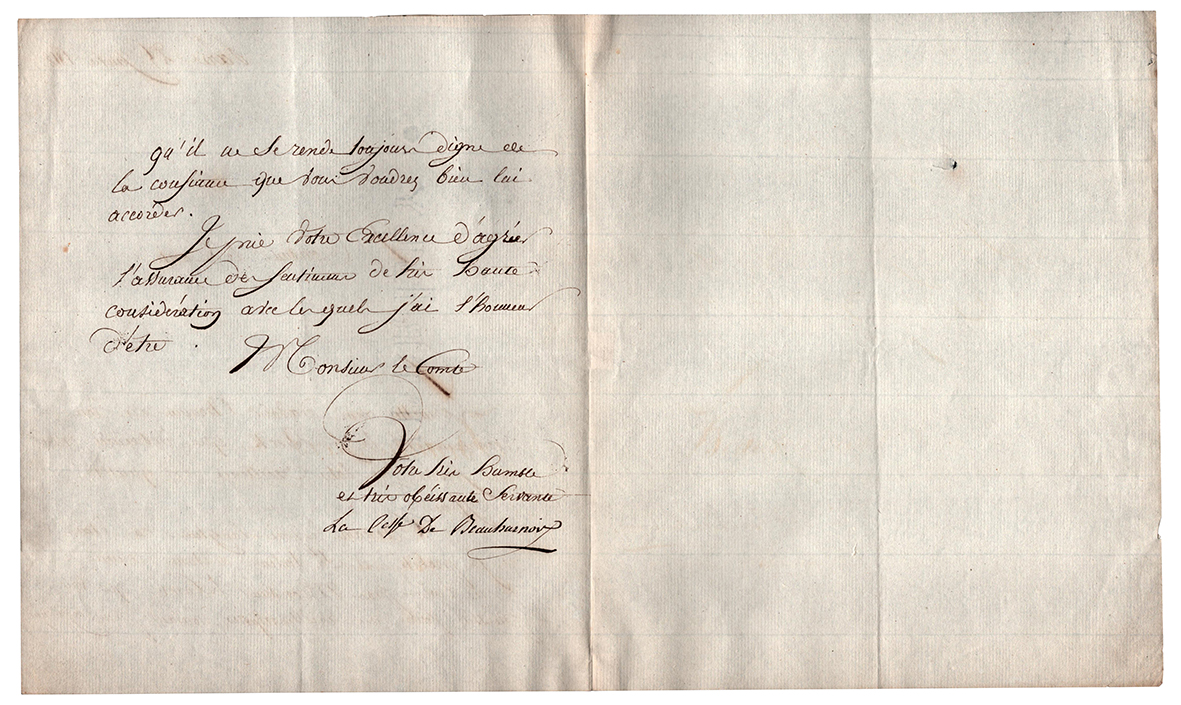 qu'il ne se rende toujours digne de
la confiance que vous voudrez bien lui
accorder.
Je prie Votre Excellence d'agréer
l'assurance des sentimens de très haute
considération avec lesquels j'ai l'honneur
d'être.
Monsieur le Comte
Votre très humble
et très obéissante Servante
La Ctesse De Beauharnois